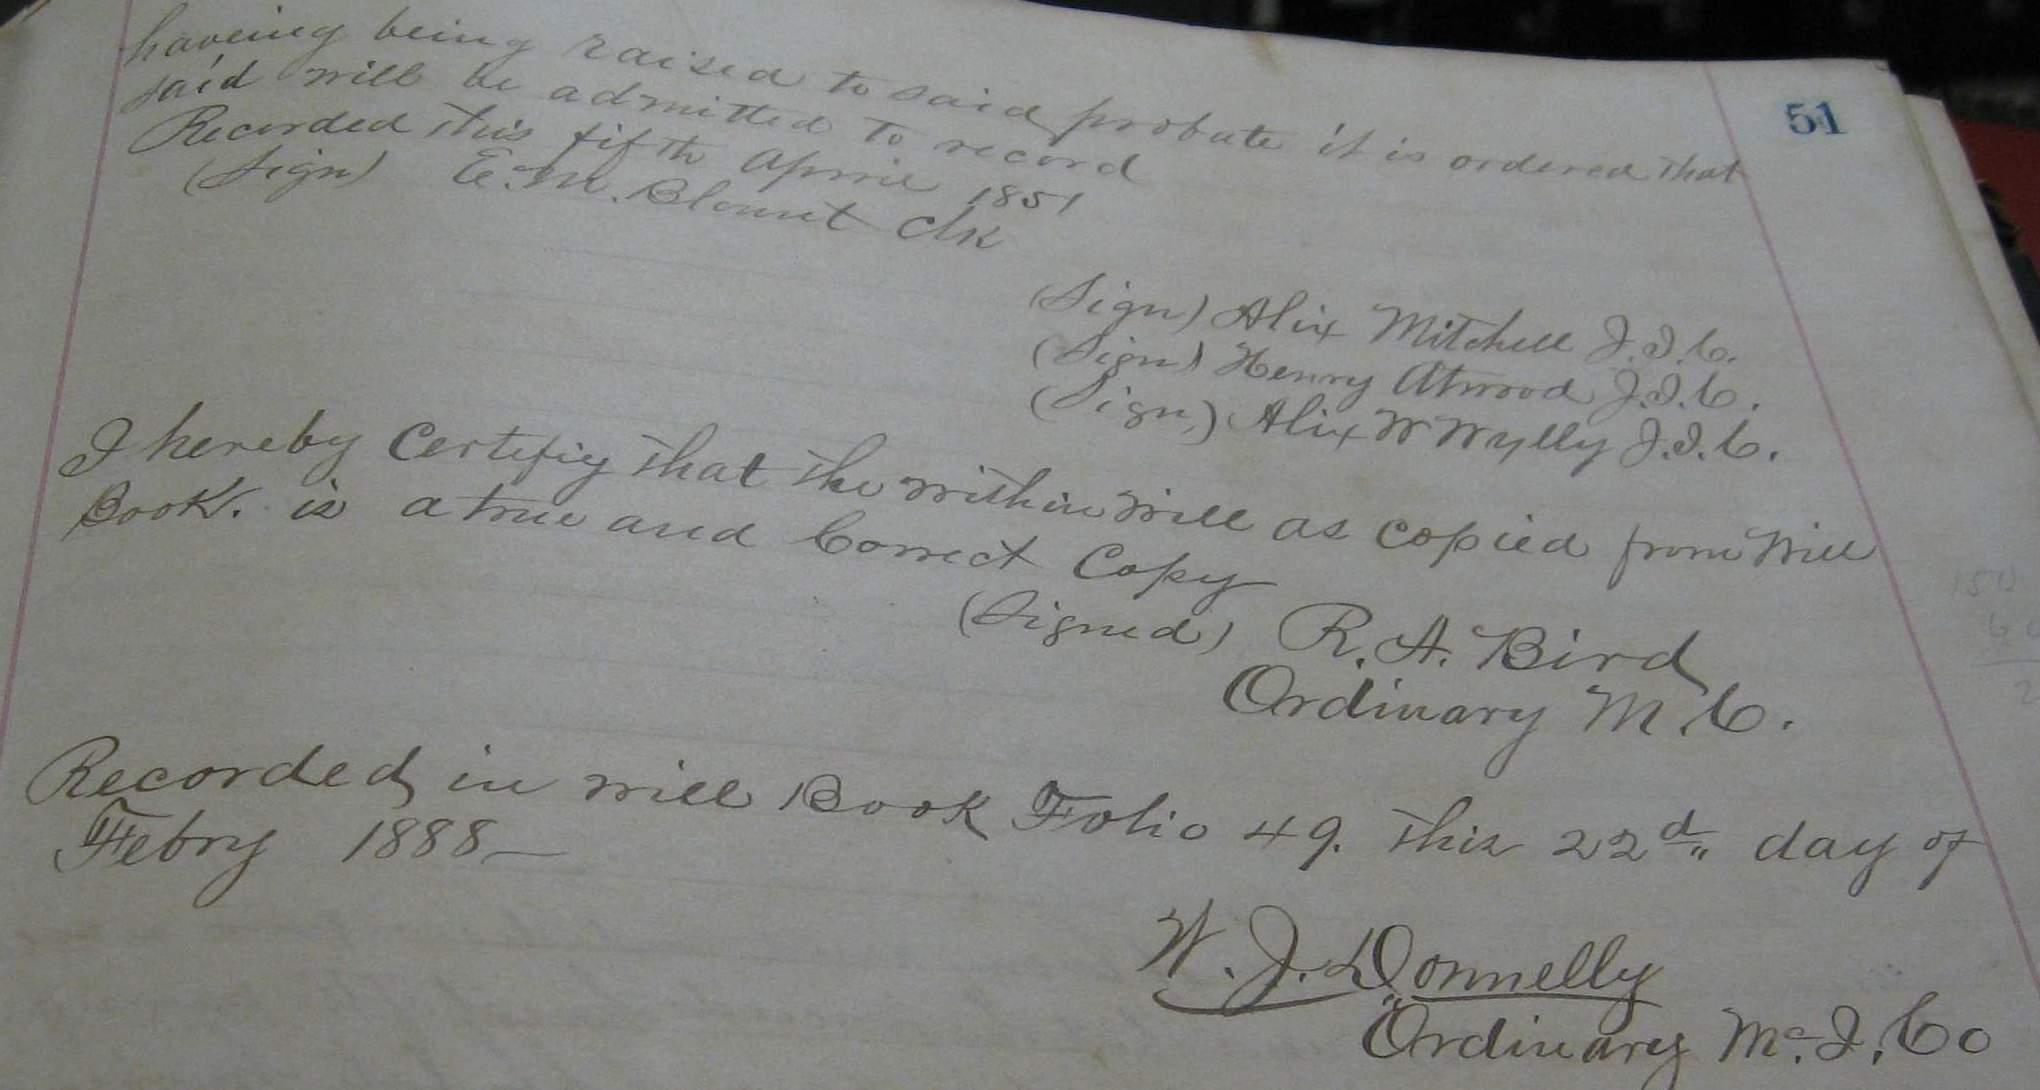 51
haveing being raised to said probate it is ordered that
said will be admitted to record
Recorded this fifth April 1851
(Sign) E. M. Blount Clk
(Sign) Alix Mitchell J.I.C.
(Sign) Henry Atwood J.I.C.
(Sign) Alix W Wylly J.I.C.
I hereby Certifiy that the within Will as copied from Will
Book. is a true and Correct Copy
(Signed) R. A. Bird
Ordinary M.C.
Recorded in will Book Folio 49. this 22d day of
Febry 1888—
W. J. Donnelly
Ordinary Mc.I. Co